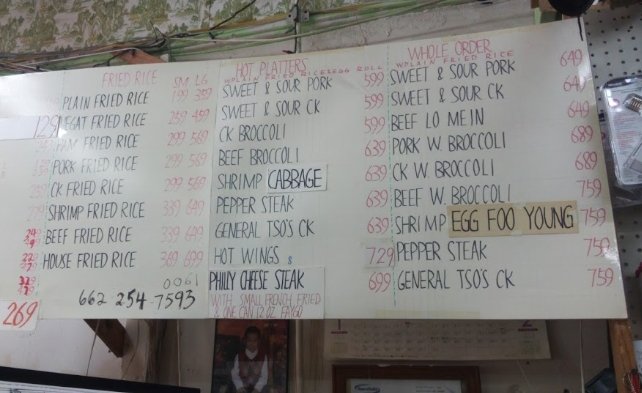 FRIED RICE SM LG
PLAIN FRIED RICE 199 359
VEGAT FRIED RICE 259 459
HAM FRIED RICE 299 569
PORK FRIED RICE 299 569
CK FRIED RICE 299 569
SHRIMP FRIED RICE 339 649
BEEF FRIED RICE 339 649
HOUSE FRIED RICE 369 699
0061
662 254 7593
129
269
HOT PLATTERS
W PLAIN FRIED RICE & EGG ROLL
SWEET & SOUR PORK 599
SWEET & SOUR CK 599
CK BROCCOLI 639
BEEF BROCCOLI 639
SHRIMP CABBAGE 639
PEPPER STEAK 639
GENERAL TSO'S CK 729
HOT WINGS & 699
PHILLY CHEESE STEAK
WITH SMALL FRENCH FRIED
& ONE CAN 12 OZ.
WHOLE ORDER
W PLAIN FRIED RICE
SWEET & SOUR PORK 649
SWEET & SOUR CK 649
BEEF LO MEIN 649
PORK W. BROCCOLI 689
CK W. BROCCOLI 689
BEEF W. BROCCOLI 759
SHRIMP EGG FOO YOUNG 759
PEPPER STEAK 759
GENERAL TSO'S CK 759
1 2